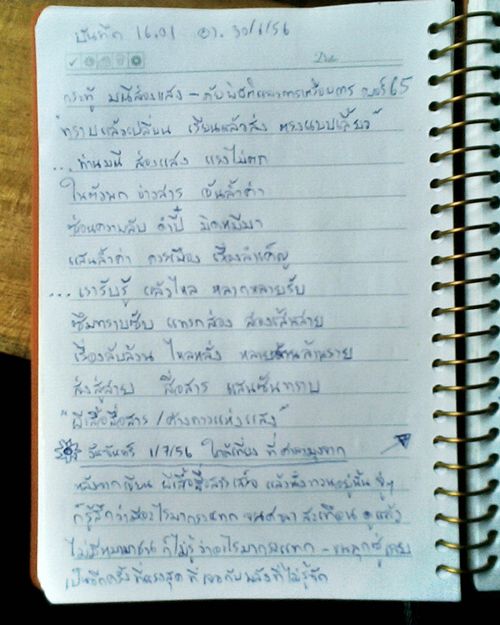 บันทึก 16.01 อา. 30/6/56
Date
กระทู้ มณีส่องแสง - กับพิธีกรและการเตรียมการ เบอร์ 65
"ทราบแล้วเปลี่ยน เรียนแล้วส่ง ตรงแบบเลี้ยว"
... ท่านมณี ส่องแสง แรงไม่ตก
ในตัวพก ข่าวสาร อันล้ำค่า
ซ่อนความลับ
แสนล้ำค่า ควรเมือง เรื่องสำคัญ
... เรารับรู้ แล้วไหล หลากหลายรับ
ซึมทราบซับ แทรกส่อง สองเส้นสาย
เรื่องลับล้วน ไหลหลั่ง หลายล้านราย
ส่งสู่สาย สื่อสาร แสนซึมทราบ
"ผีเสื้อสื่อสาร / ค้างคาวแห่งแสง"
วันจันทร์ 1/7/56 ใกล้เที่ยง ที่ศาลา
หลังจากเขียน ผีเสื้อสื่อสารเสร็จ แล้วนั่งทานอยู่นั้น จู่ๆ
ก็รู้สึกว่ามีอะไรมากระแทก จนศาลาสะเทือน ดูแล้ว
ไม่มีหมามาชน ก็ไม่รู้ว่าอะไรมากระแทก - ขนลุกซู่เลย
เป็นอีกครั้งที่แรงสุด ที่เจอกับพลังที่ไม่รู้จัก